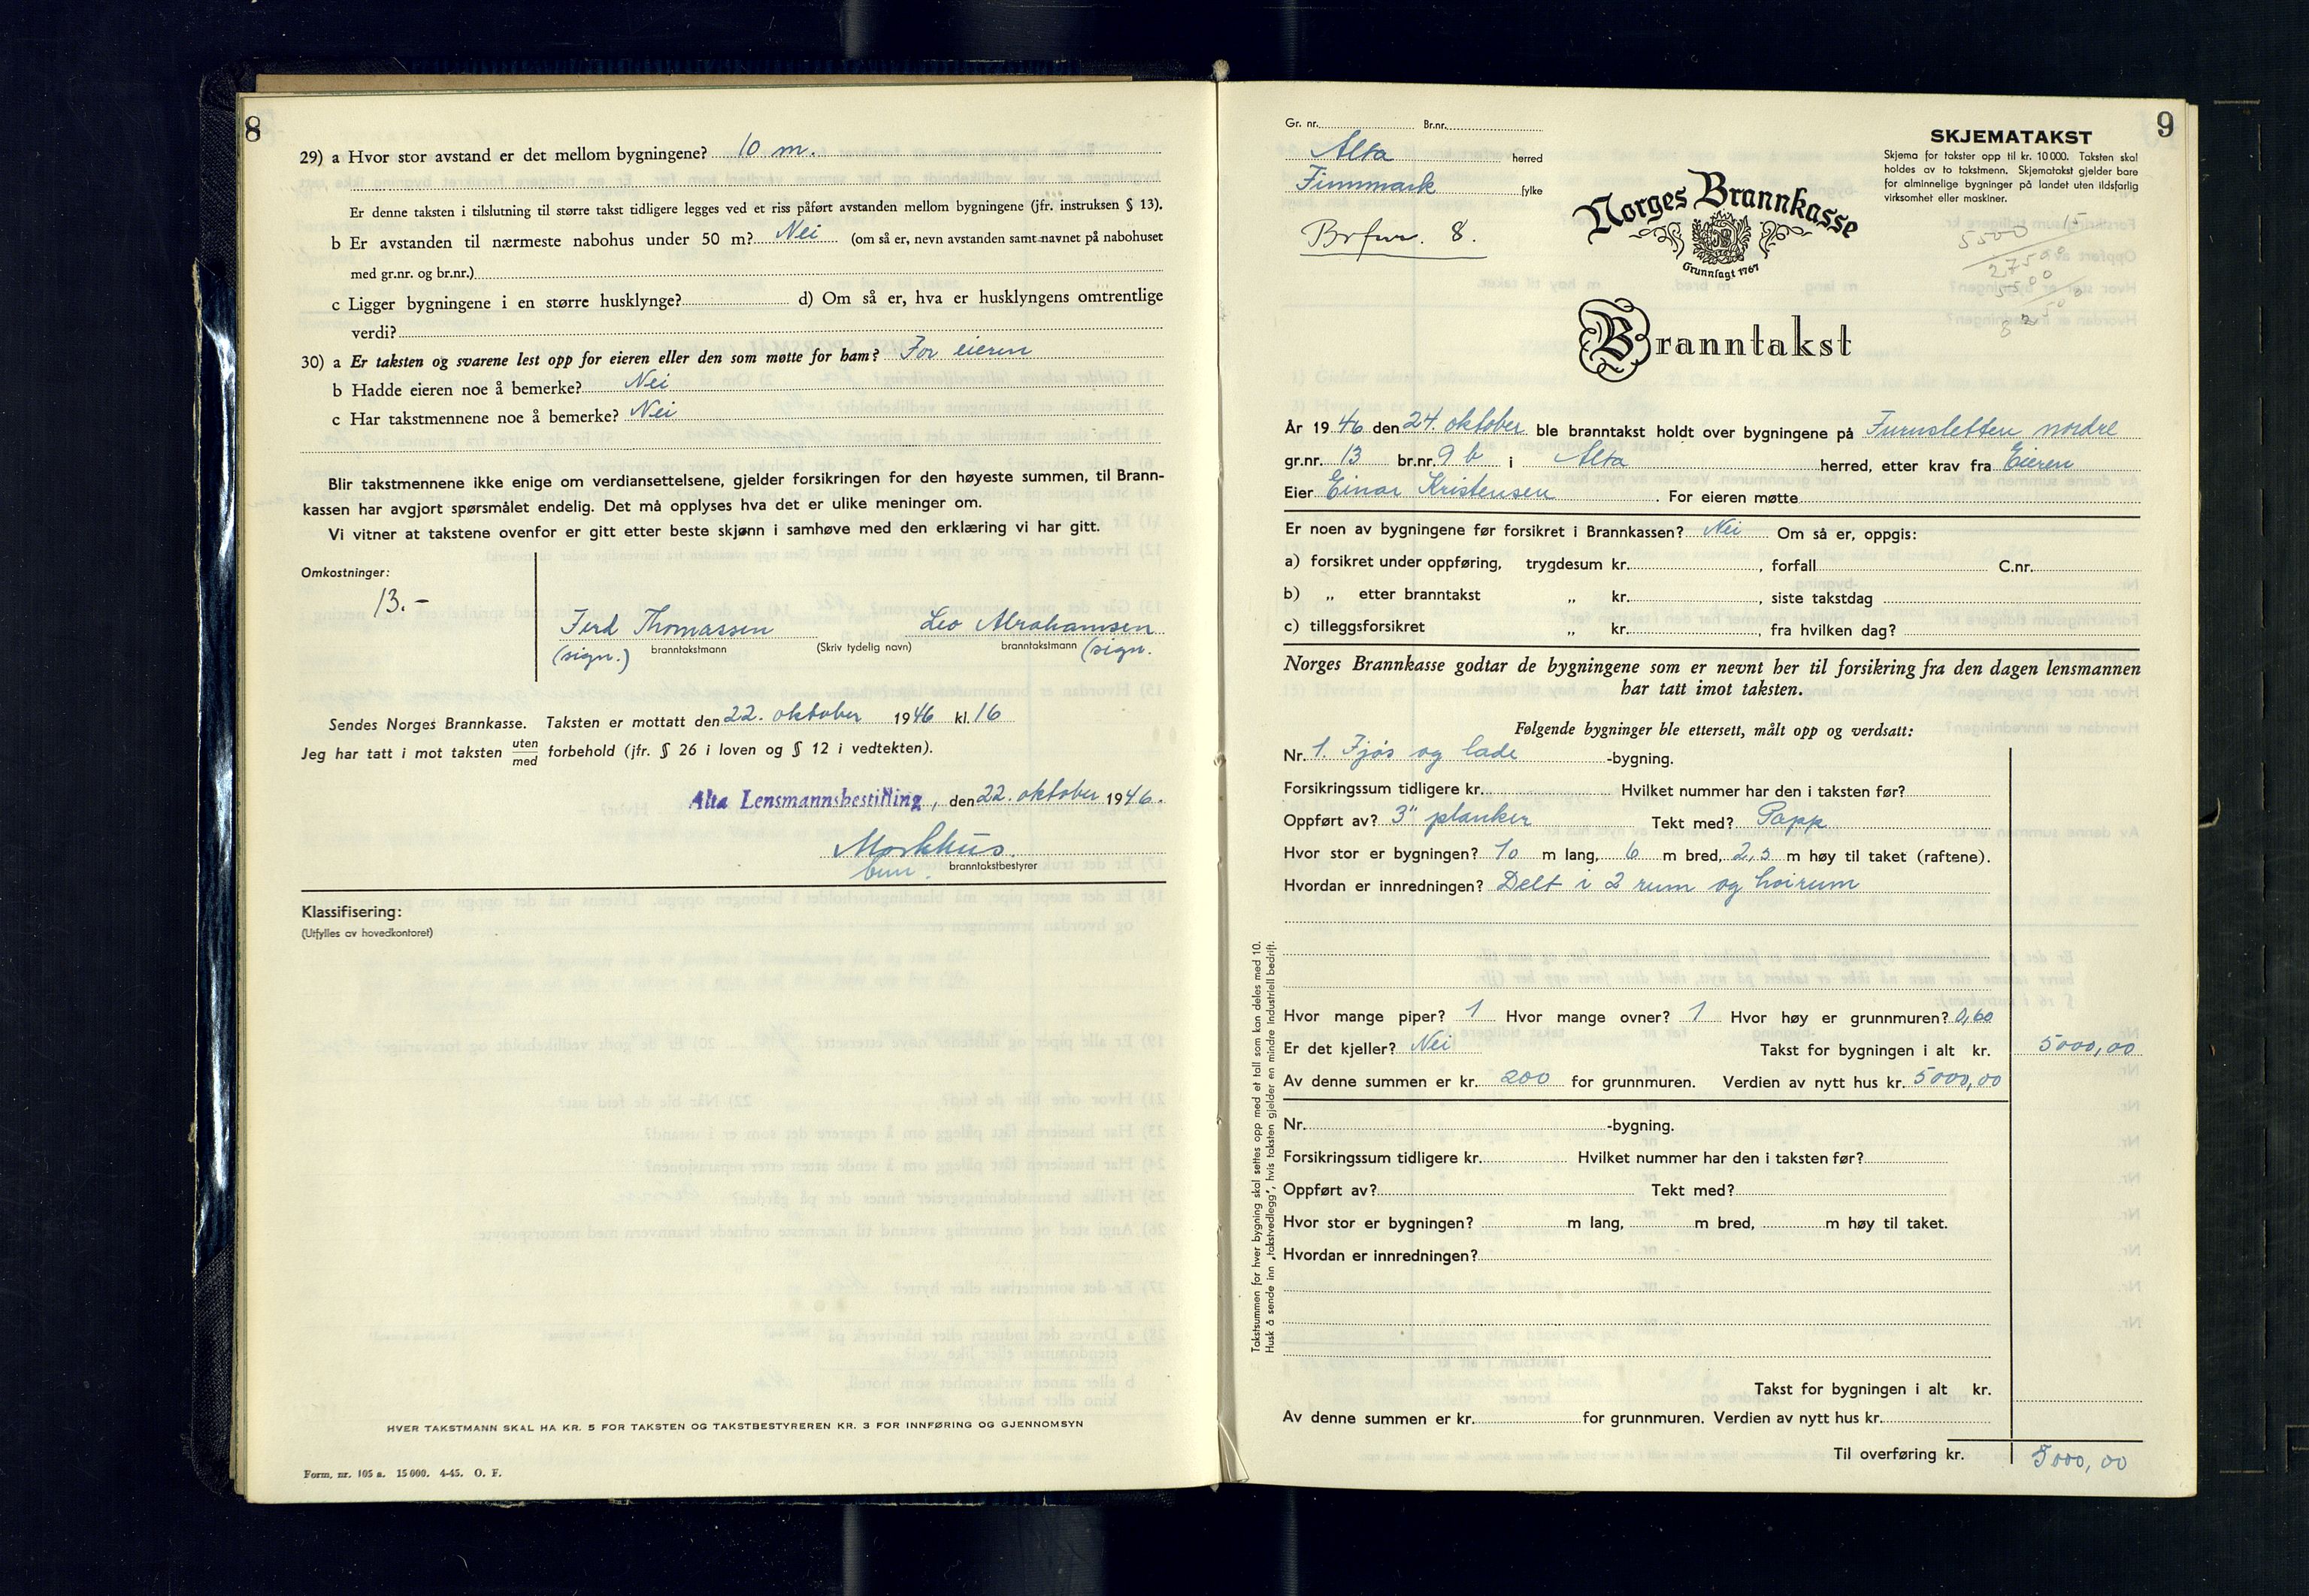 8
29) a Hvor stor avstand er det mellom bygningene? 10 m.
Er denne taksten i tilslutning til større takst tidligere legges ved et riss påført avstanden mellom bygningene (jfr. instruksen § 13).
b Er avstanden til nærmeste nabohus under 50 m? Nei (om så er, nevn avstanden samt navnet på nabohuset
med gr.nr. og br.nr.)
c Ligger bygningene i en større husklynge? d) Om så er, hva er husklyngens omtrentlige
verdi?
30) a Er taksten og svarene lest opp for eieren eller den som møtte for ham? For eieren
b Hadde eieren noe å bemerke? Nei
c Har takstmennene noe å bemerke? Nei
Blir takstmennene ikke enige om verdiansettelsene, gjelder forsikringen for den høyeste summen, til Brann-
kassen har avgjort spørsmålet endelig. Det må opplyses hva det er ulike meninger om.
Vi vitner at takstene ovenfor er gitt etter beste skjønn i samhøve med den erklæring vi har gitt.
Omkostninger:
13.-
Ferd Thomassen Leo Abrahamsen
(sign.) branntakstmann (Skriv tydelig navn) branntakstmann (sign.
Sendes Norges Brannkasse. Taksten er mottatt den 22. oktober 1946 kl. 16
Jeg har tatt i mot taksten uten
med forbehold (jfr. § 26 i loven og § 12 i vedtekten).
Alta Lensmannsbestilling, den 22. oktober 1946.
Morkhus.
branntakstbestyrer
Klassifisering:
(Utfylles av hovedkontoret)
HVER TAKSTMANN SKAL HA KR. 5 FOR TAKSTEN OG TAKSTBESTYREREN KR. 3 FOR INNFØRING OG GJENNOMSYN
Form. nr. 105 a. 15 000. 4-45. O. F.
9
Gr. nr. Br.nr.
Alta herred
Finnmark fylke
Brfnr. 8.
SKJEMATAKST
Skjema for takster opp til kr. 10 000. Taksten skal
holdes av to takstmenn. Skjematakst gjelder bare
for alminnelige bygninger på landet uten ildsfarlig
virksomhet eller maskiner.
Norges Brannkasse
Grunnlagt 1767
5500 15
Branntakst
År 1946 den 24. oktober ble branntakst holdt over bygningene på Furusletten nordre
gr.nr. 13 br.nr. 9 b i Alta herred, etter krav fra Eieren
Eier Einar Kristensen. For eieren møtte
Er noen av bygningene før forsikret i Brannkassen? Nei Om så er, oppgis:
a) forsikret under oppføring, trygdesum kr. , forfall C.nr.
b) „ etter branntakst „ kr. , siste takstdag
c) tilleggsforsikret „ kr. , fra hvilken dag?
Norges Brannkasse godtar de bygningene som er nevnt her til forsikring fra den dagen lensmannen
har tatt imot taksten.
Følgende bygninger ble ettersett, målt opp og verdsatt:
Nr. 1. Fjøs og lade -bygning.
Forsikringssum tidligere kr. Hvilket nummer har den i taksten før?
Oppført av? 3" planker Tekt med? Papp
Hvor stor er bygningen? 10 m lang, 6 m bred, 2,5 m høy til taket (raftene).
Hvordan er innredningen? Delt i 2 rum og høirum
Hvor mange piper? 1 Hvor mange ovner? 1 Hvor høy er grunnmuren? 0,60
Er det kjeller? Nei Takst for bygningen i alt kr. 5000,00
Av denne summen er kr. 200 for grunnmuren. Verdien av nytt hus kr. 5000,00
Nr. -bygning.
Forsikringssum tidligere kr. Hvilket nummer har den i taksten før?
Oppført av? Tekt med?
Hvor stor er bygningen? m lang, m bred, m høy til taket.
Hvordan er innredningen?
Takst for bygningen i alt kr.
Av denne summen er kr. for grunnmuren. Verdien av nytt hus kr.
Til overføring kr. 5000,00
Takstsummen for hver bygning skal settes opp med et tall som kan deles med 10.
Husk å sende inn „takstvedlegg", hvis taksten gjelder en mindre industriell bedrift.